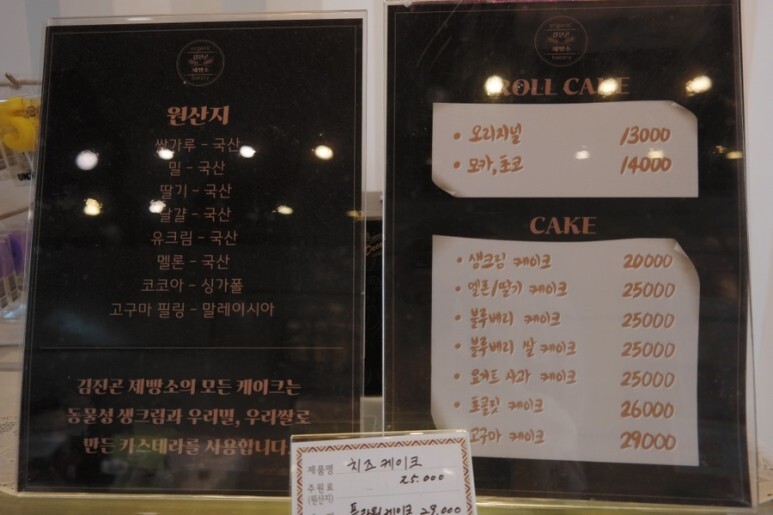 김진곤
제빵소
bakery
원산지
쌀가루 - 국산
밀 - 국산
딸기 - 국산
달걀 - 국산
유크림 - 국산
멜론 - 국산
코코아 - 싱가폴
고구마 필링 - 말레이시아
김진곤 제빵소의 모든 케이크는
동물성 생크림과 우리밀, 우리쌀로
만든 카스테라를 사용합니다.
김진곤
제빵소
bakery
ROLL CAKE
• 오리지널 13000
• 모카, 초코 14000
CAKE
• 생크림 케이크 20000
• 멜론/딸기 케이크 25000
• 블루베리 케이크 25000
• 블루베리 쌀 케이크 25000
• 요거트 사과 케이크 25000
• 초콜릿 케이크 26000
• 고구마 케이크 29000
제품명 치즈케이크
25.000
주원료
(원산지)
케이크 29.000